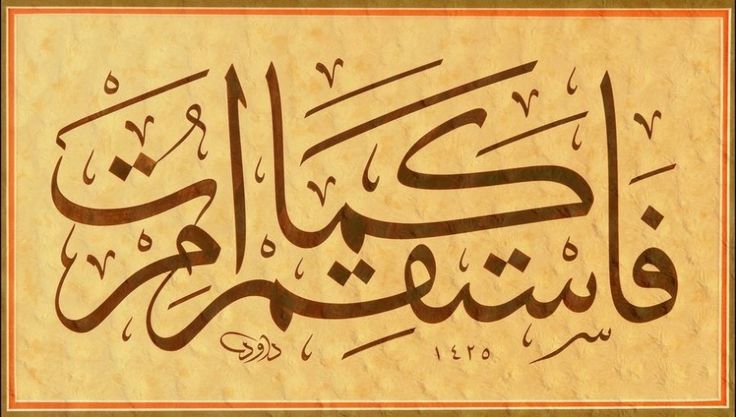 فَاسْتَقِمْ كَمَا اُمِرْتَ
داود ١٤٢٥